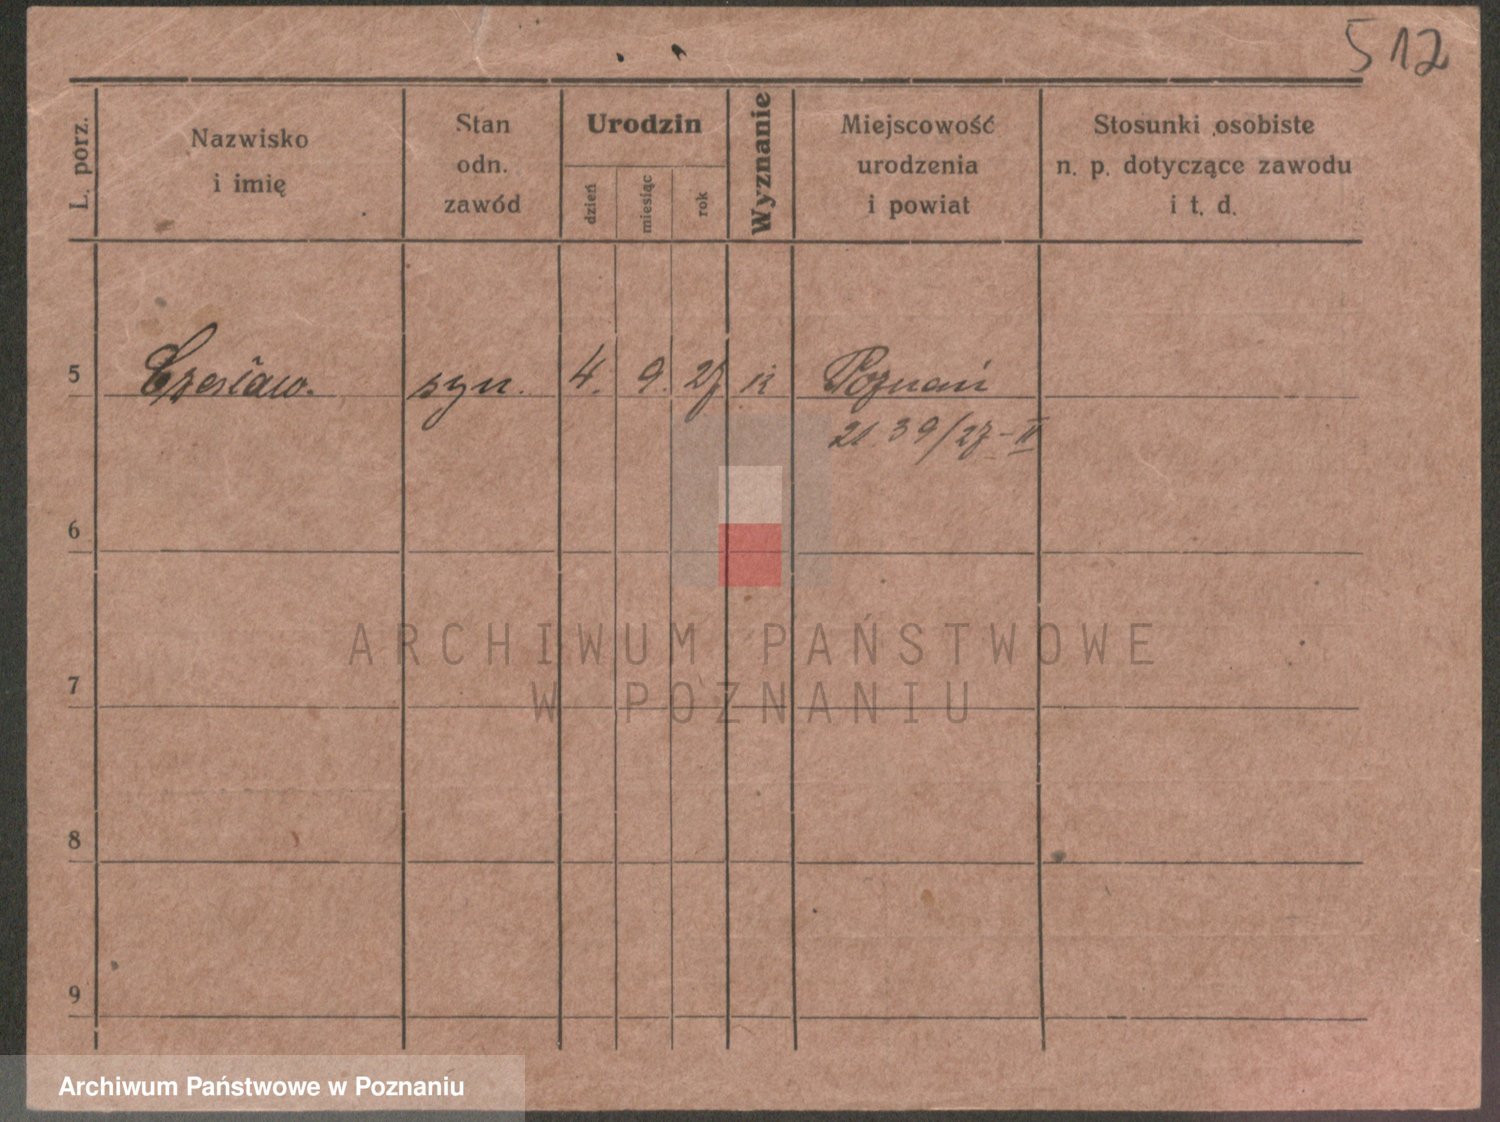 512
L. porz.
Nazwisko
i imię
Stan
odn.
zawód
Urodzin
dzień
miesiąc
rok
Wyznanie
Miejscowość
urodzenia
i powiat
Stosunki osobiste
n. p. dotyczące zawodu
i t. d.
5 Czesław. syn. 4. 9. 27 k Poznań
2139/27-II
6
7
8
9
ARCHIWUM PAŃSTWOWE
W POZNANIU
Archiwum Państwowe w Poznaniu